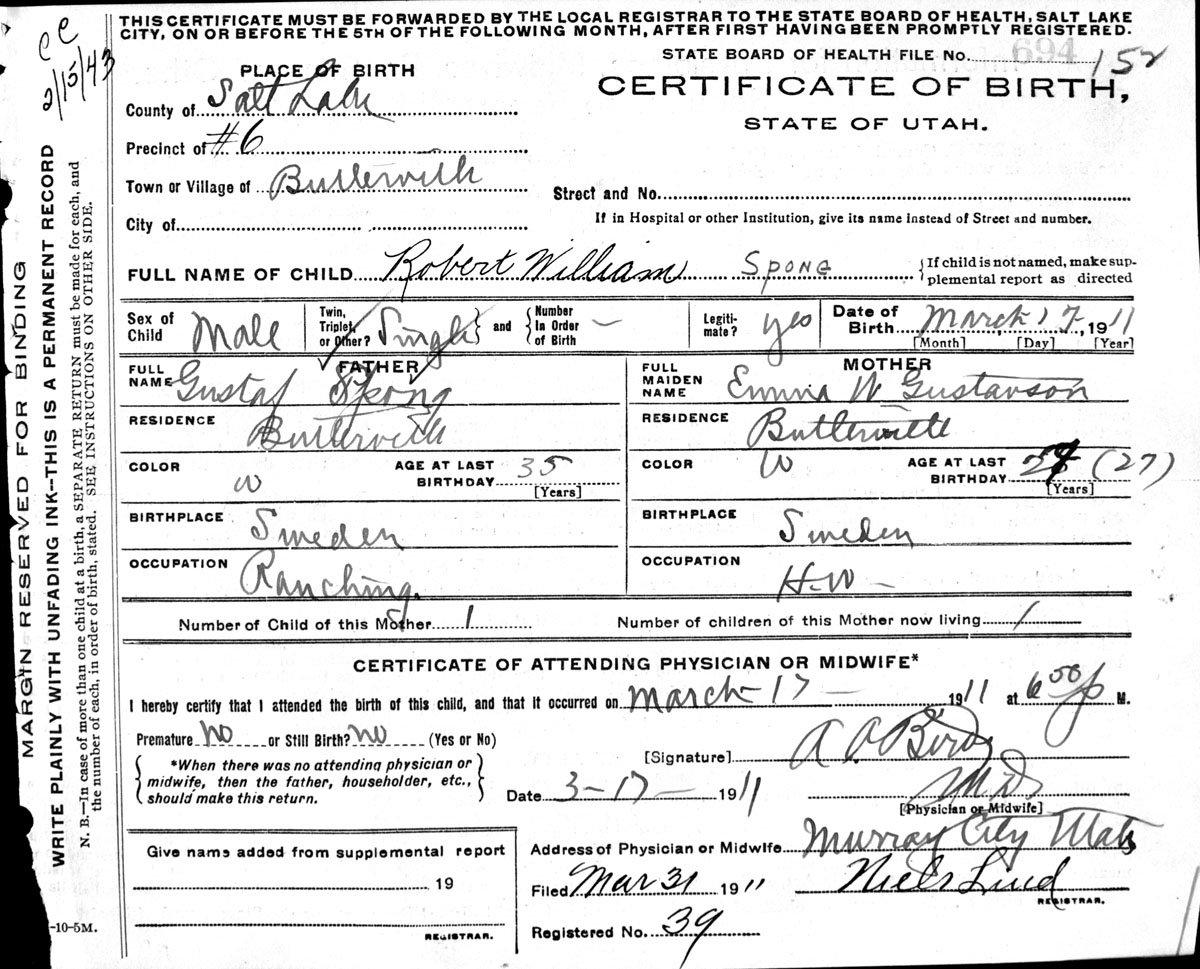 THIS CERTIFICATE MUST BE FORWARDED BY THE LOCAL REGISTRAR TO THE STATE BOARD OF HEALTH, SALT LAKE
CITY, ON OR BEFORE THE 5TH OF THE FOLLOWING MONTH, AFTER FIRST HAVING BEEN PROMPTLY REGISTERED.
CC
2/15/43
STATE BOARD OF HEALTH FILE No. 694 152
PLACE OF BIRTH
CERTIFICATE OF BIRTH,
STATE OF UTAH.
County of Salt Lake
Precinct of #6
Town or Village of Butlerville
Street and No.
City of
If in Hospital or other Institution, give its name instead of Street and number.
FULL NAME OF CHILD Robert William Spong {If child is not named, make supplemental report as directed
Sex of Child Male Twin, Triplet, or Other? Single } and { Number In Order of Birth — Legitimate? yes Date of Birth March 17 1911
[Month] [Day] [Year]
FATHER MOTHER
FULL NAME Gustaf Spong FULL MAIDEN NAME Emma W Gustavson
RESIDENCE Butlerville RESIDENCE Butlerville
COLOR W AGE AT LAST BIRTHDAY 35 [Years] COLOR W AGE AT LAST BIRTHDAY (27) [Years]
BIRTHPLACE Sweden BIRTHPLACE Sweden
OCCUPATION Ranching. OCCUPATION H-W —
Number of Child of this Mother 1 Number of children of this Mother now living 1
CERTIFICATE OF ATTENDING PHYSICIAN OR MIDWIFE*
I hereby certify that I attended the birth of this child, and that it occurred on March 17 — 1911 at 6 50 p M.
Premature No or Still Birth? no (Yes or No)
[Signature] M.D.
[Physician or Midwife]
{ *When there was no attending physician or midwife, then the father, householder, etc., should make this return. }
Date 3-17- 1911
Give name added from supplemental report
19
REGISTRAR.
Address of Physician or Midwife Murray City Utah
Filed Mar 31 1911 Niels Lind
REGISTRAR.
Registered No. 39
MARGIN RESERVED FOR BINDING
WRITE PLAINLY WITH UNFADING INK--THIS IS A PERMANENT RECORD
N. B.—In case of more than one child at a birth, a SEPARATE RETURN must be made for each, and
the number of each, in order of birth, stated. SEE INSTRUCTIONS ON OTHER SIDE.
-10-5M.